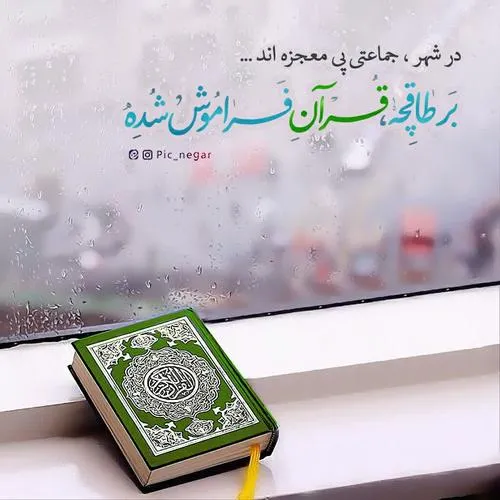 در شهر ، جماعتی پی معجزه اند ...
بَر طاقِچِهٔ، قُرآنِ فَراموُش شُدِه
Pic_negar
القرآن الكريم